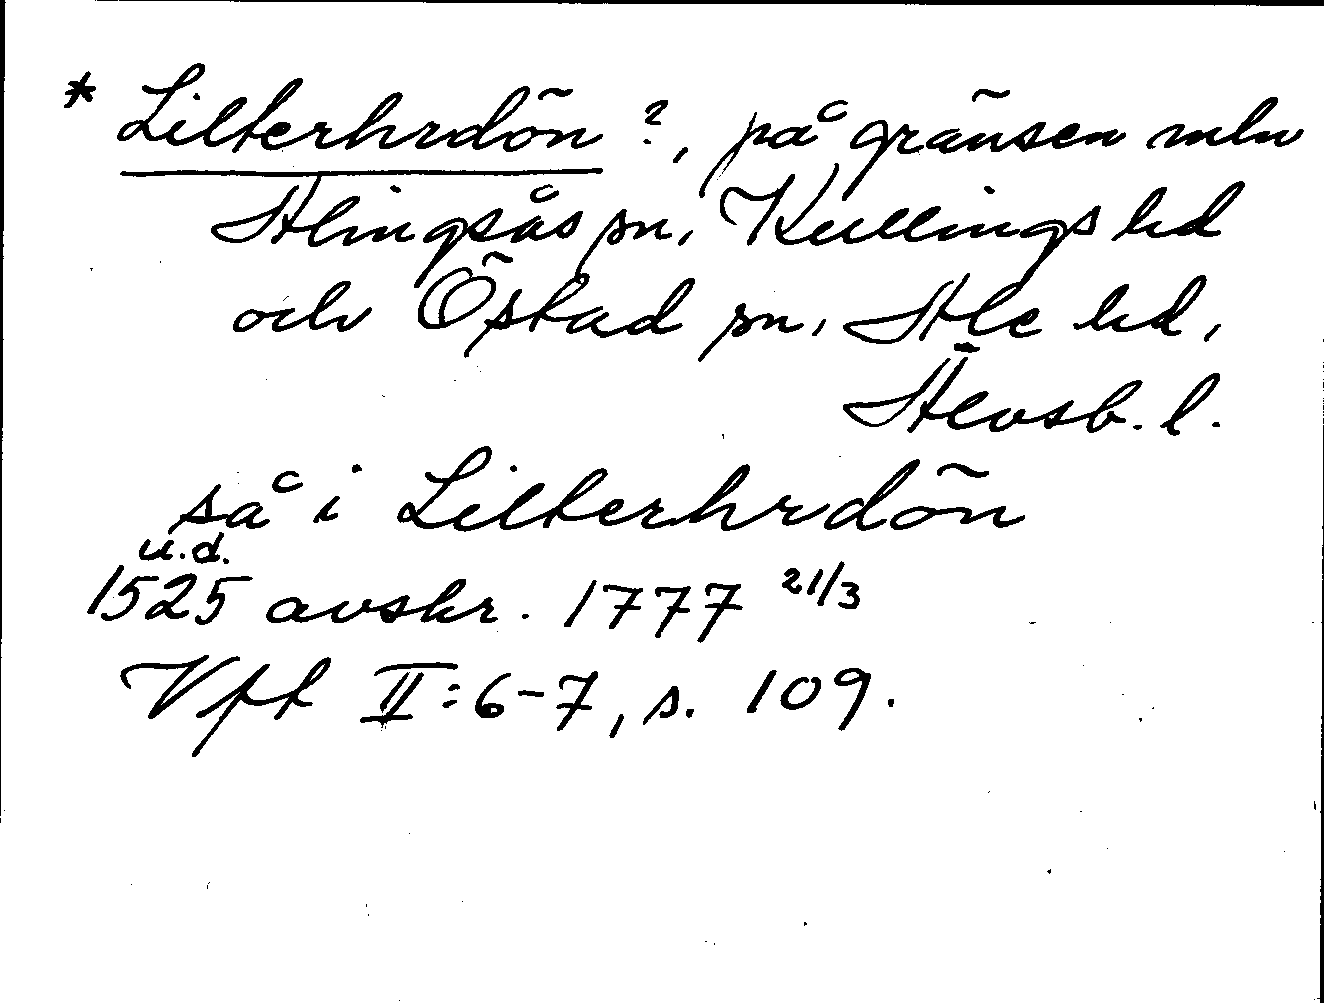 * Lilterhrdön ?, på gränsen mln
Alingsås sn, Kullings hd
och Östad sn, Ale hd,
Älvsb. l.
så i Lilterhrdön
u.d.
1525 avskr. 1777 21/3
Vft II:6-7, s. 109.